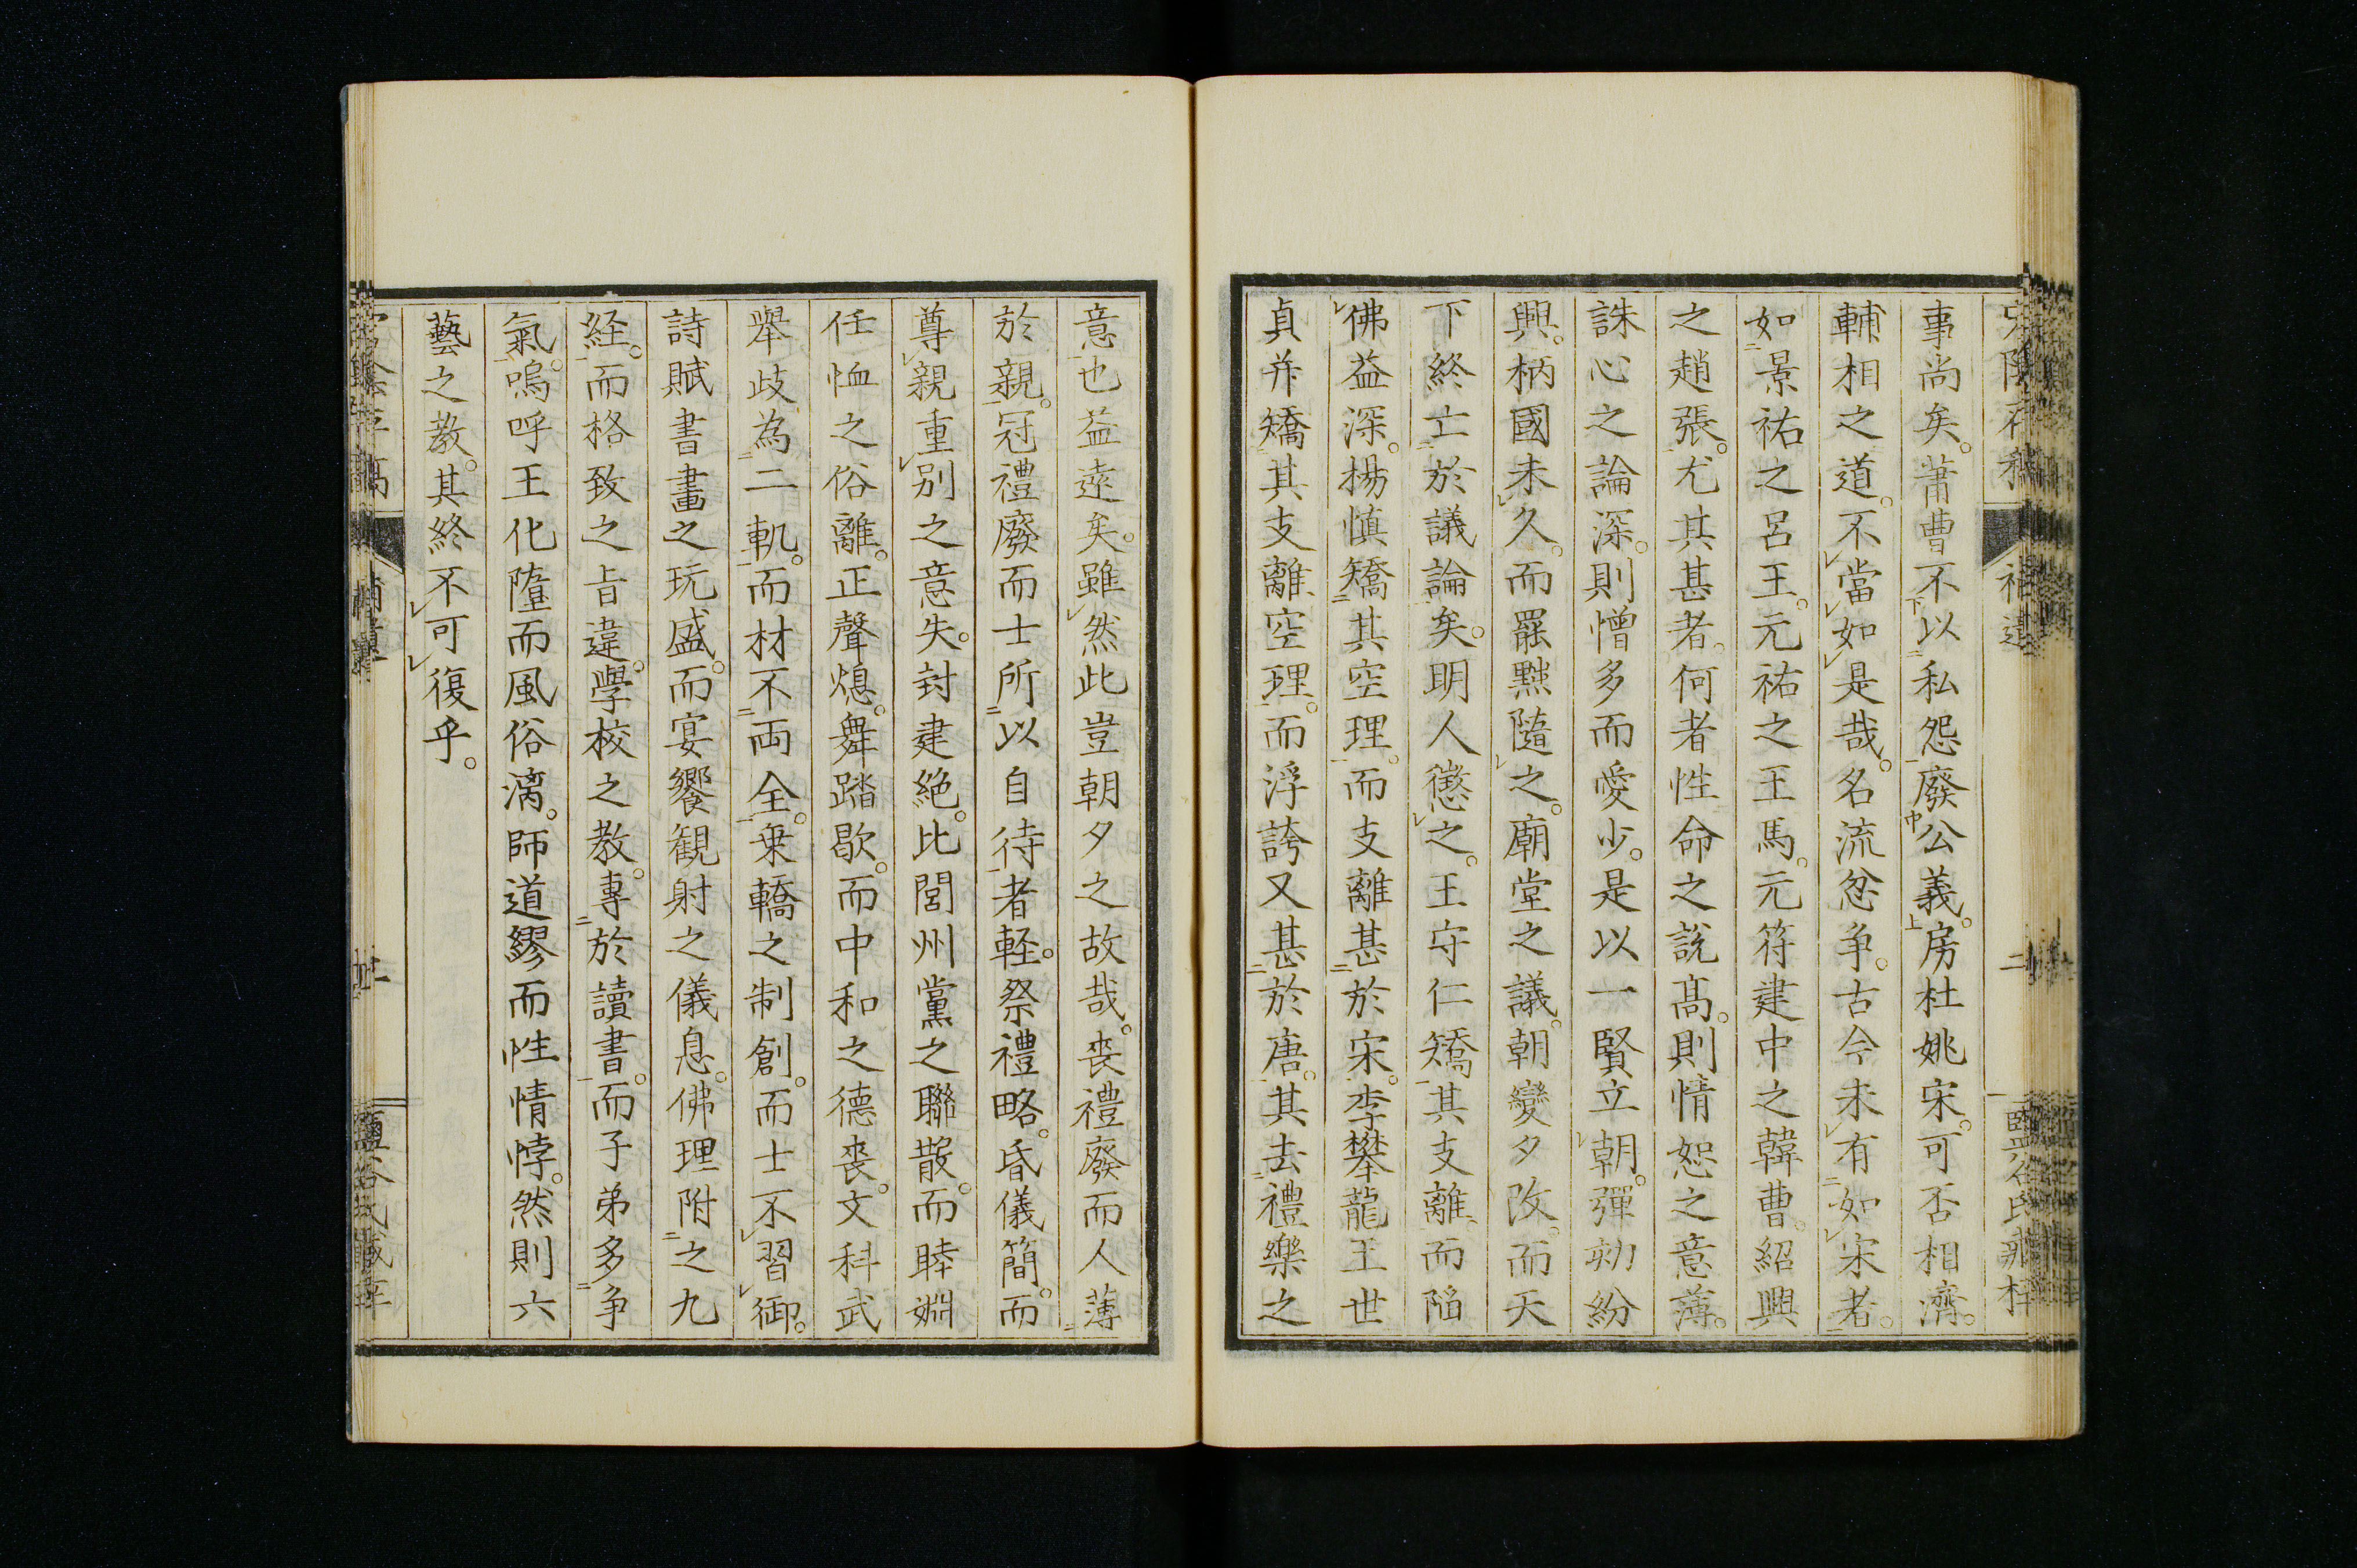 事尚矣。蕭曹不以私怨廢公義。房杜姚宋。可否相濟。
輔相之道。不當如是哉。名流忿争。古今未有如宋者。
如景祐之呂王。元祐之王馬。元符建中之韓曹。紹興
之趙張。尤其甚者。何者性命之說髙。則情恕之意薄。
誅心之論深。則憎多而愛少。是以一賢立朝。彈劾紛
興。柄國未久。而罷黜隨之。廟堂之議。朝變夕改。而天
下終亡於議論矣。明人懲之。王守仁矯其支離而陷
佛益深。楊慎矯其空理。而支離甚於宋。李攀龍王世
貞并矯其支離空理。而浮誇又甚於唐。其去禮樂之
意也益遠矣。雖然此豈朝夕之故哉。喪禮廢而人薄
於親。冠禮廢而士所以自待者軽。祭禮略。昏儀簡。而
尊親重别之意失。封建絶。比閭州黨之聯散。而睦婣
任恤之俗離。正聲熄。舞踏歇。而中和之德喪。文科武
舉歧為二軌。而材不両全。乗轎之制創。而士不習御。
詩賦書畫之玩盛。而宴饗観射之儀息。佛理附之九
経。而格致之旨違。學校之教。專於讀書。而子弟多争
氣。嗚呼王化隳而風俗漓。師道繆而性情悖。然則六
藝之教。其終不可復乎。
二